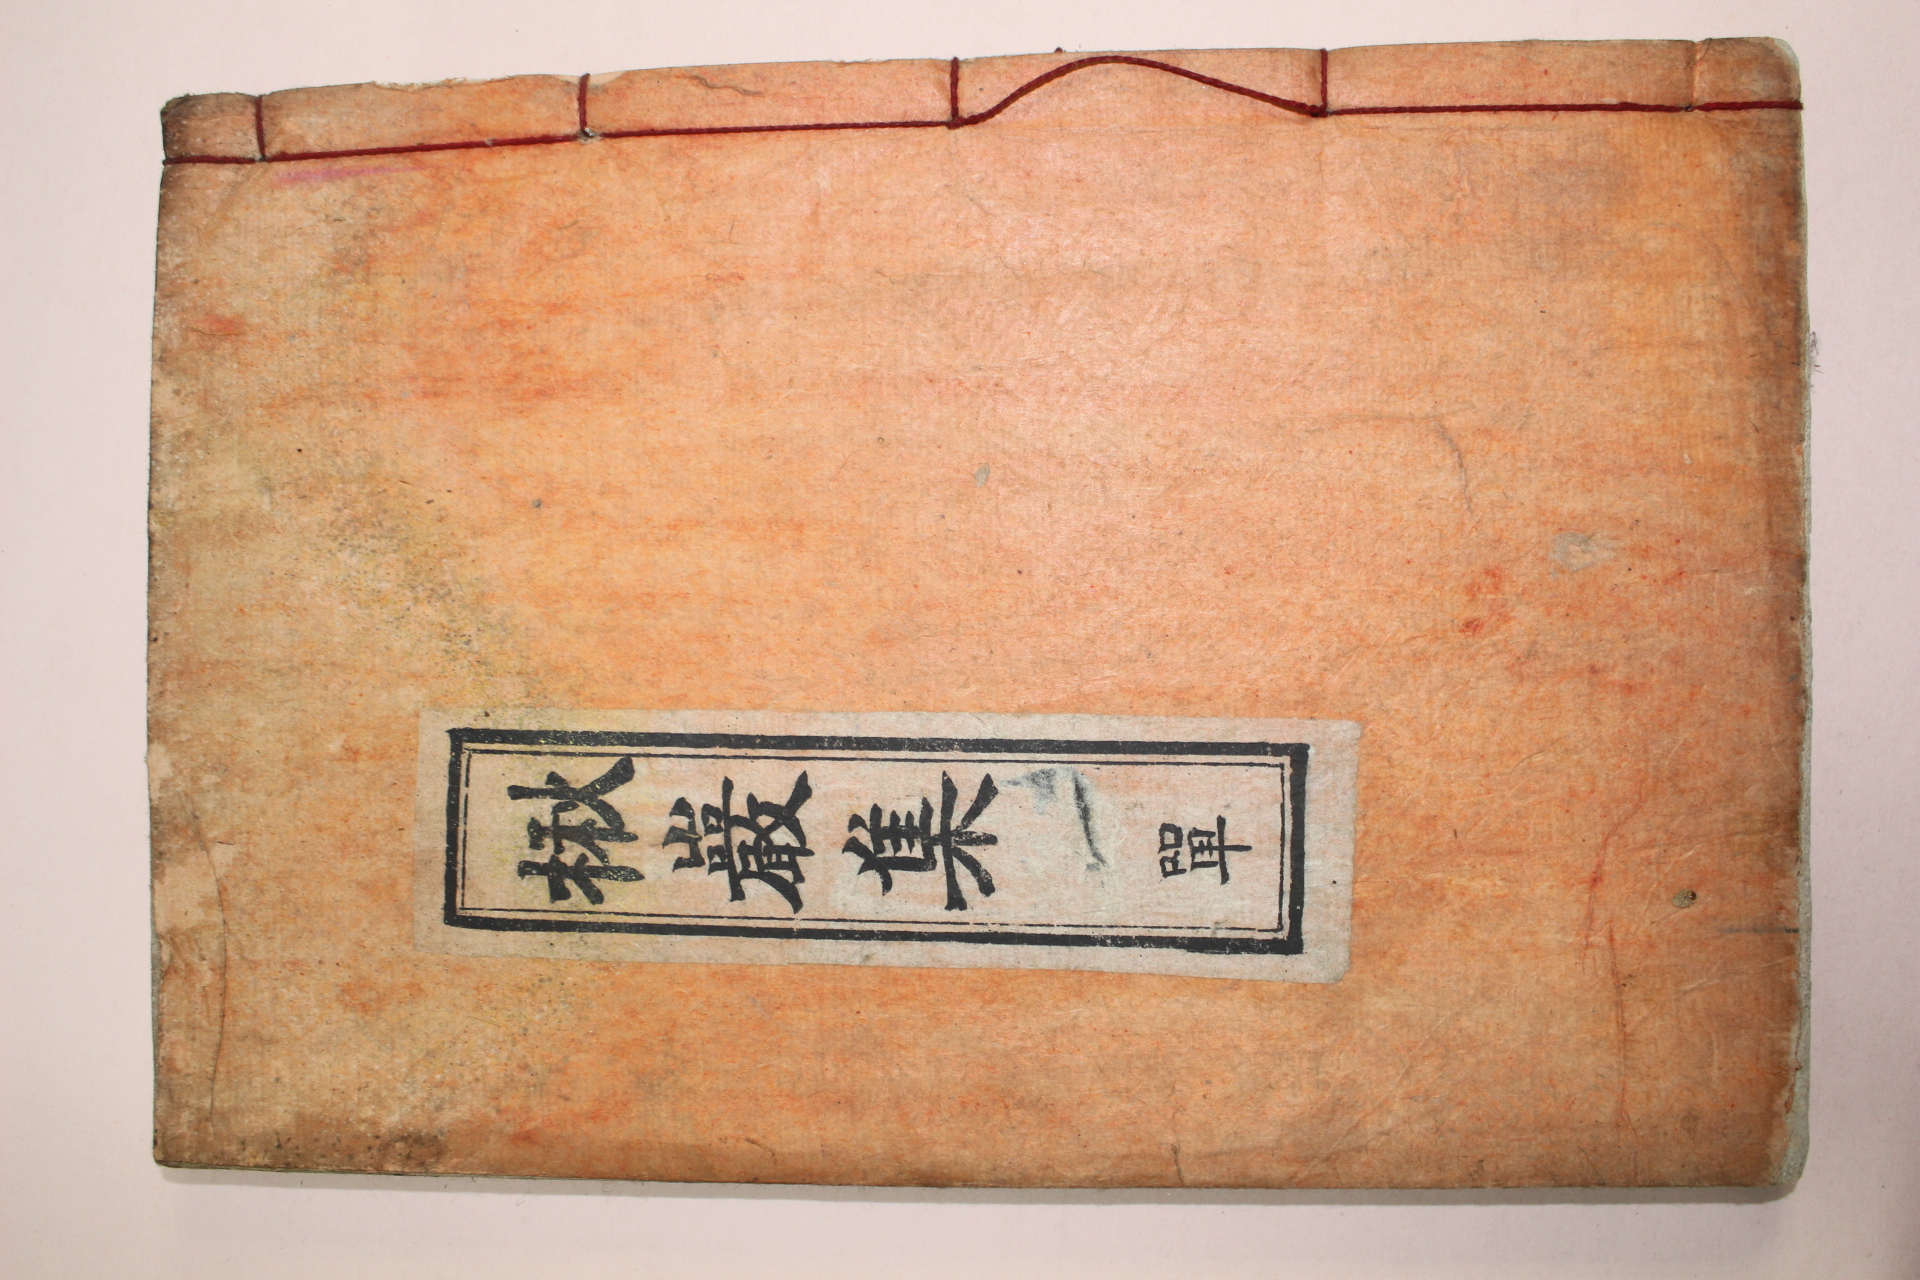 楸巖集 單